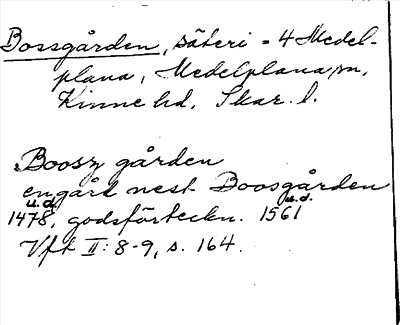 Bossgården, säteri = 4 Medel-
plana, Medelplana sn,
Kinne hd, Skar. l.
Boosz gården
en gård nest Boosgården
u.d. u.d.
1478, godsförteckn. 1561
Vft II: 8-9, s. 164.